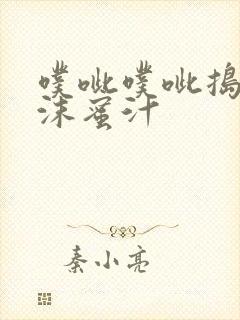 噗呲噗呲捣
沫蜜汁
秦小亮